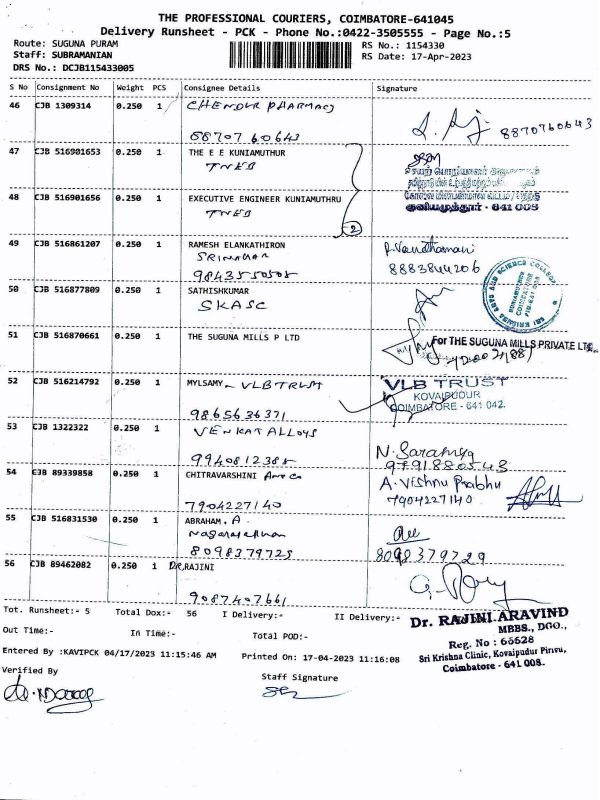 THE PROFESSIONAL COURIERS, COIMBATORE-641045
Delivery Runsheet - PCK - Phone No.:0422-3505555 - Page No.:5
Route: SUGUNA PURAM
RS No.: 1154330
Staff: SUBRAMANIAN
RS Date: 17-Apr-2023
DRS No.: DCJB115433005
S No Consignment No Weight PCS Consignee Details Signature
46 CJB 1309314 0.250 1 CHENDUR PHARMACY
8870760643 8870760643
47 CJB 516901653 0.250 1 THE E E KUNIAMUTHUR
TNEB
48 CJB 516901656 0.250 1 EXECUTIVE ENGINEER KUNIAMUTHRU
TNEB
குனியமுத்தூர் - 641 008
2
49 CJB 516861207 0.250 1 RAMESH ELANKATHIRON
SRINAGAR
9843550505 8883844206
50 CJB 516877809 0.250 1 SATHISHKUMAR
SKASC
SRI KRISHNA ARTS AND SCIENCE COLLEGE
51 CJB 516870661 0.250 1 THE SUGUNA MILLS P LTD
For THE SUGUNA MILLS PRIVATE LTD.
52 CJB 516214792 0.250 1 MYLSAMY - VLB TRUST
VLB TRUST
KOVAIPUDUR
COIMBATORE - 641 042.
9865636371
53 CJB 1322322 0.250 1 VENKAT ALLOYS
9940812385
N. Saranya
9791880543
54 CJB 89339858 0.250 1 CHITRAVARSHINI
A. Vishnu Prabhu
7904227140 7904227140
55 CJB 516831530 0.250 1 ABRAHAM. A
8098379729 8098379729
56 CJB 89462082 0.250 1 DR.RAJINI
9087407661
Tot. Runsheet:- 5 Total Dox:- 56 I Delivery:- II Delivery:-
Dr. RAJINI ARAVIND
MBBS., DGO.,
Reg. No : 66628
Sri Krishna Clinic, Kovaipudur Pirivu,
Coimbatore - 641 008.
Out Time:- In Time:- Total POD:-
Entered By :KAVIPCK 04/17/2023 11:15:46 AM Printed On: 17-04-2023 11:16:08
Verified By
Staff Signature